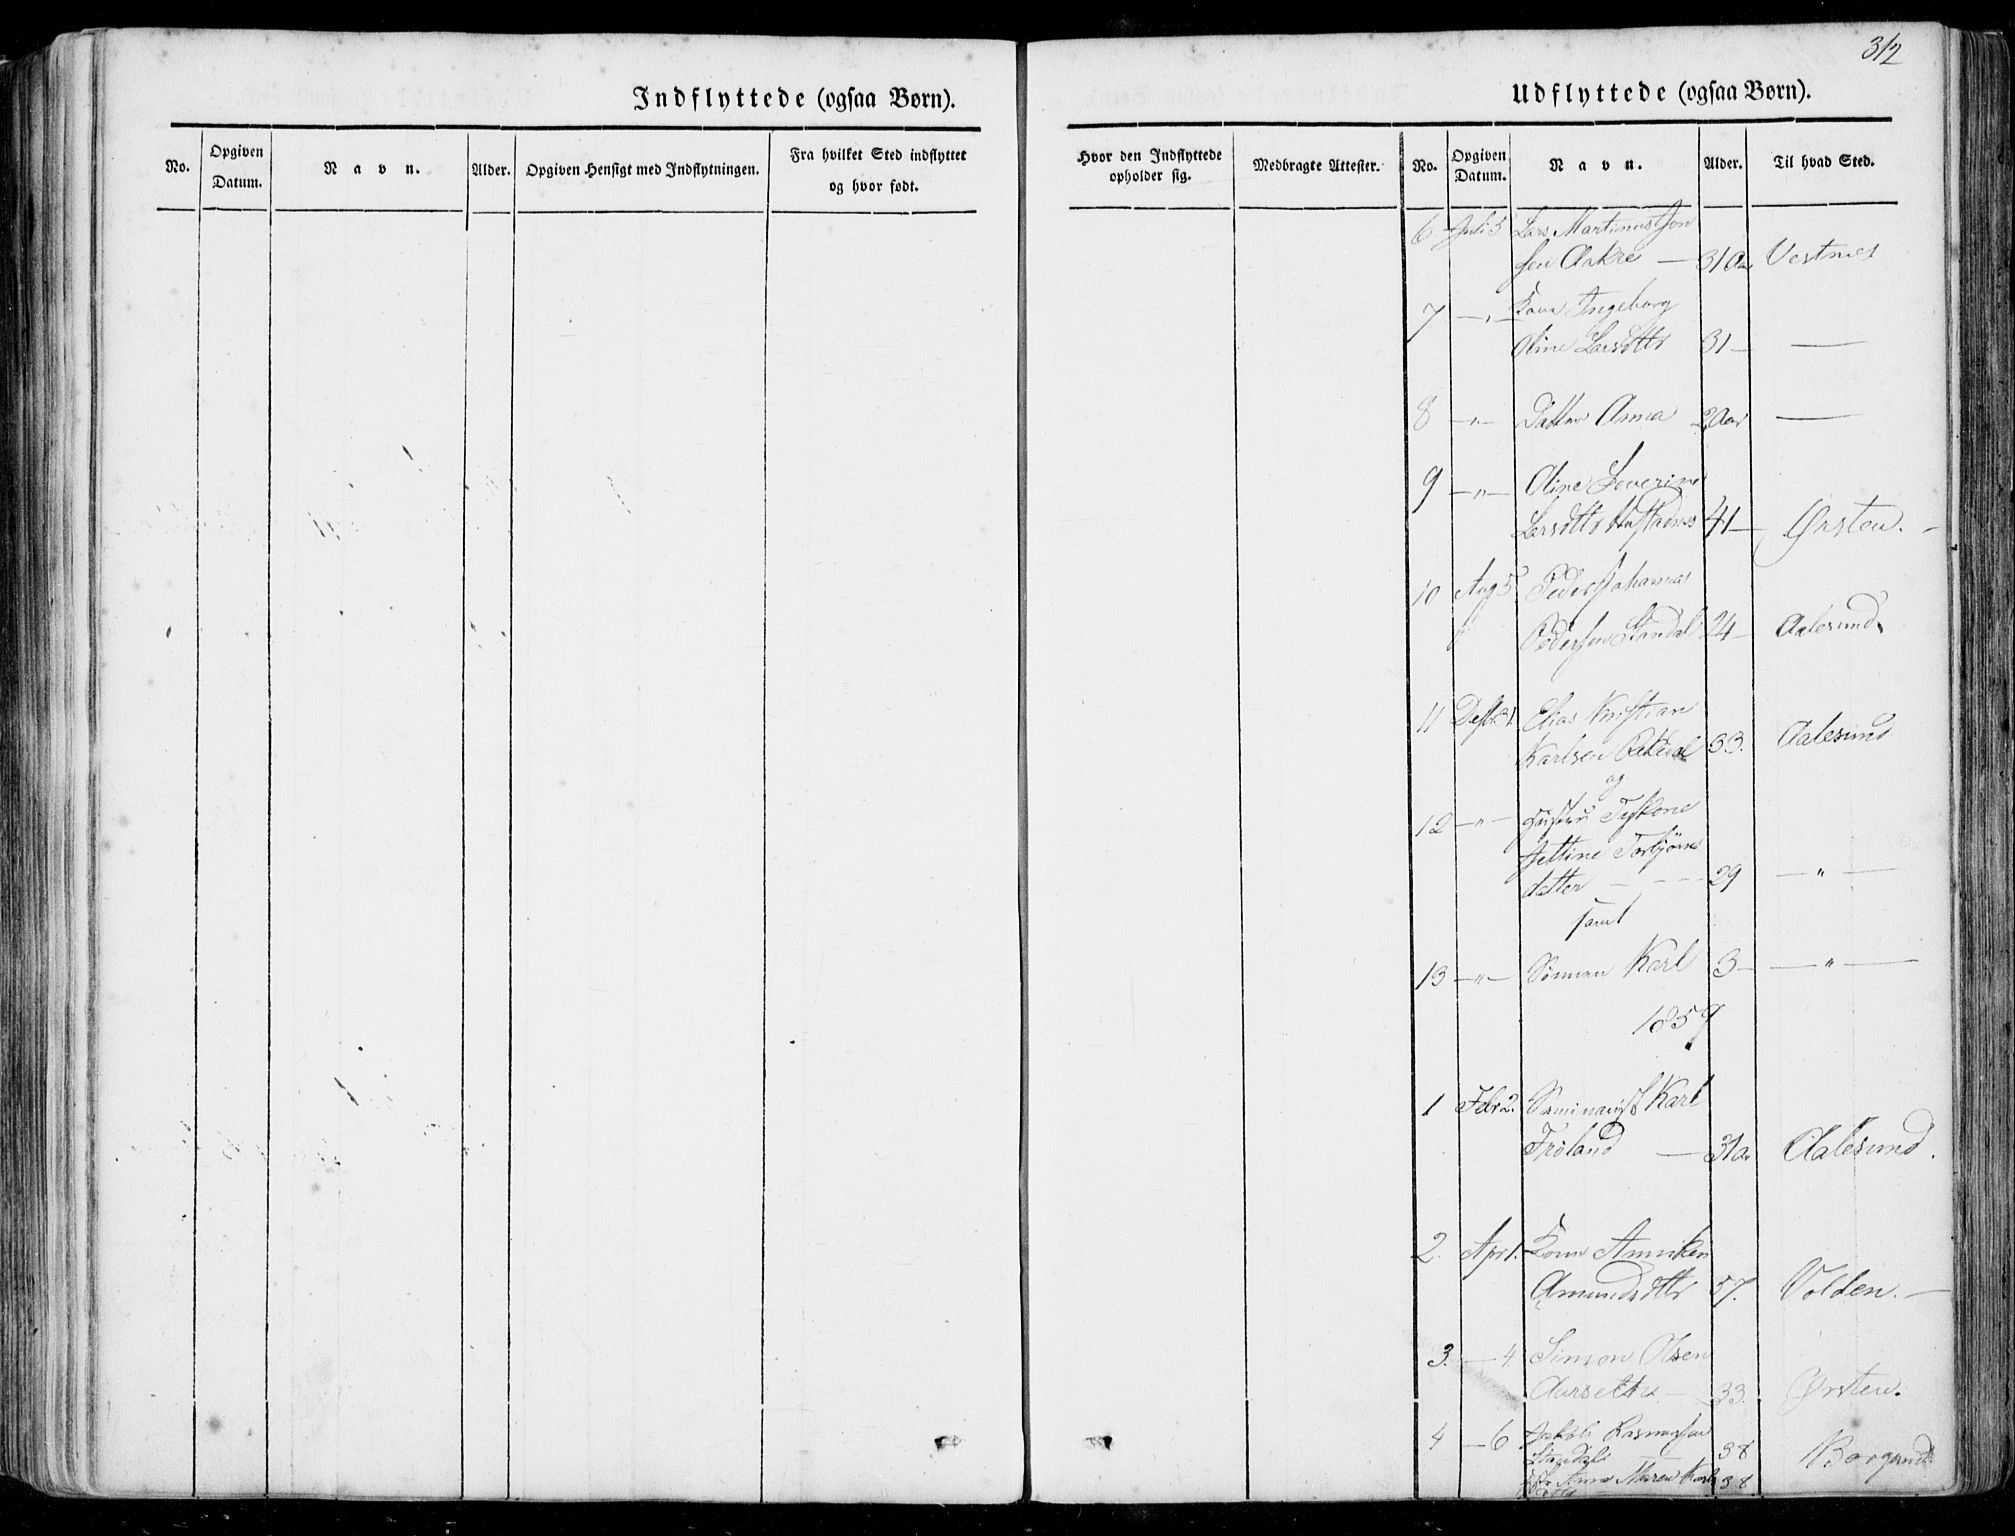 312
Indflyttede (ogsaa Børn).
No.
Opgiven
Datum.
Navn.
Alder.
Opgiven Hensigt med Indflytningen.
Fra hvilket Sted indflyttet
og hvor født.
Udflyttede (ogsaa Børn).
Hvor den Indflyttede
opholder sig.
Medbragte Attester.
No.
Opgiven
Datum.
Navn.
Alder.
Til hvad Sted.
6 Juli 5 Lars Martinus Jon
sen Aakre — 31 Aar Vestnes
7 — " — Kone Ingeborg
Oline Larsdttr 31 — —
8 — " — Datter Anna 2 Aar —
9 — " — Oline Severine
Larsdttr 41 — Ørsten. -
10 Aug 5 Peder Johannes
Pedersen Standal 24 — Aalesund
11 31. Elias Kristian
Karlsen 33. Aalesund
og
12 — " —
Jettine Torbjørns
datter — - - - 29 — " —
samt
13 — " — Sønnen Karl 3 — — " —
1859
1 Febr 2. Seminarist Karl
Frøland — 31 Aar Aalesund.
2. Apr 1. Kone Anniken
Amundsdttr 57. Volden. —
3. — 4. Simon Olsen
Aursæther — 33. Ørsten.
4 — 6 Jakob Rasmussen
Standal 38 Borgund
Anna Maren Karls 38